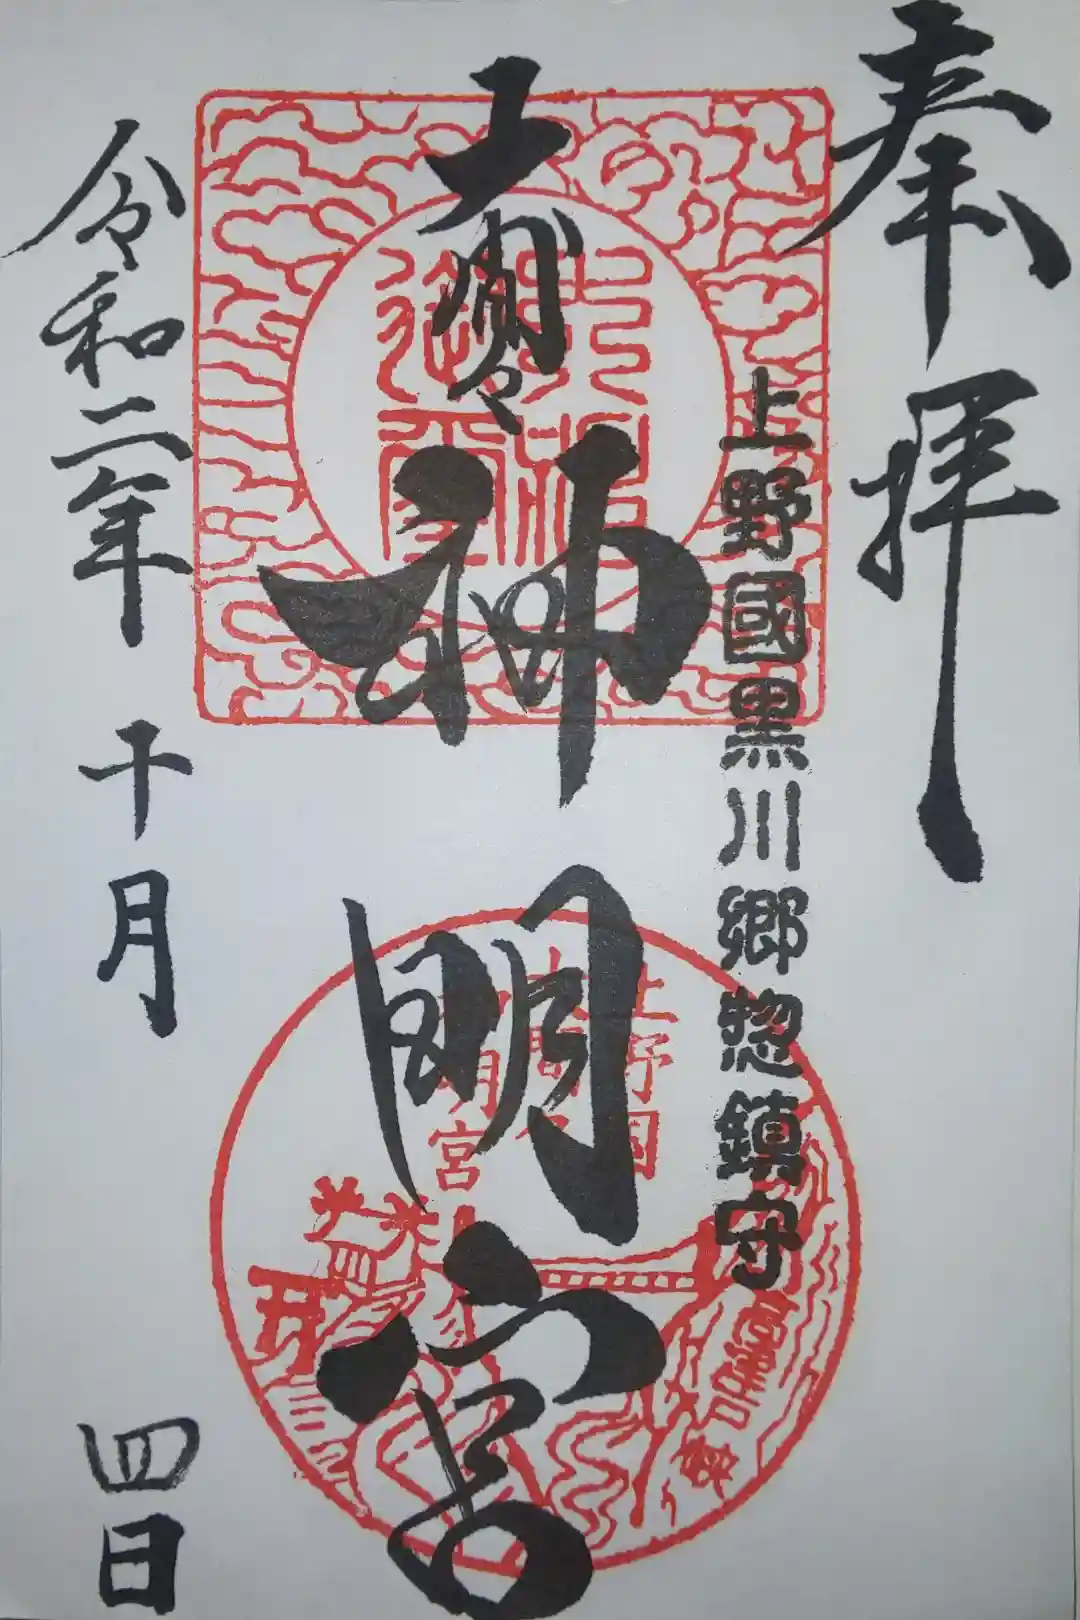 奉拝
上野國黒川郷惣鎮守
大間々神明宮
上野国
大間々
神明宮
令和二年十月四日